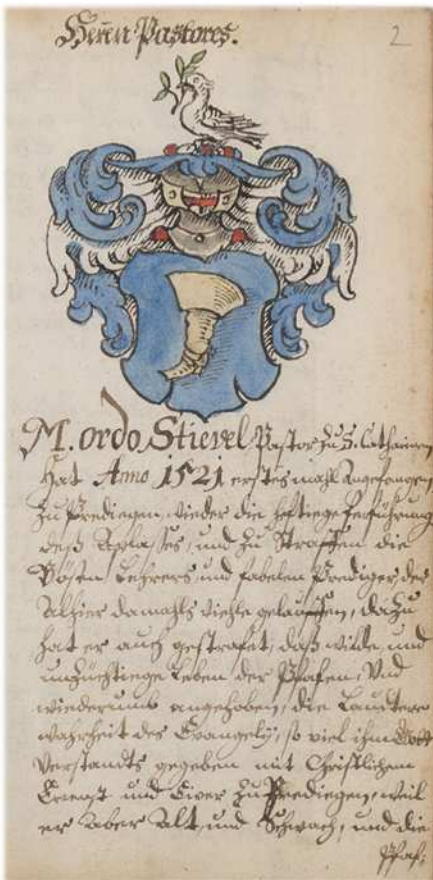 Herren Pastores.
2
M. ordo Stievel Pastor zu S. Catharinen
Hat Anno 1521 erstes mahl angefangen
zu Prediegen, wieder die heftiege Verführung
deß Aplasses, und zu Straffen die
Bösen Lehrers, und fabelen Prediger, der
Alhier damahls viehle gelauffen, dazu
hat er auch gestrafet, daß wilde, und
unzüchtiege Leben der Pfafen, Und
wiederumb angehoben, die Lautere
wahrheit des Evangelij, so viel ihm Gott
Verstandts gegeben mit Christlichem
Ernst und Eiver zu Prediegen, weil
er aber Alt, und Schwach, und die
Pfaf: